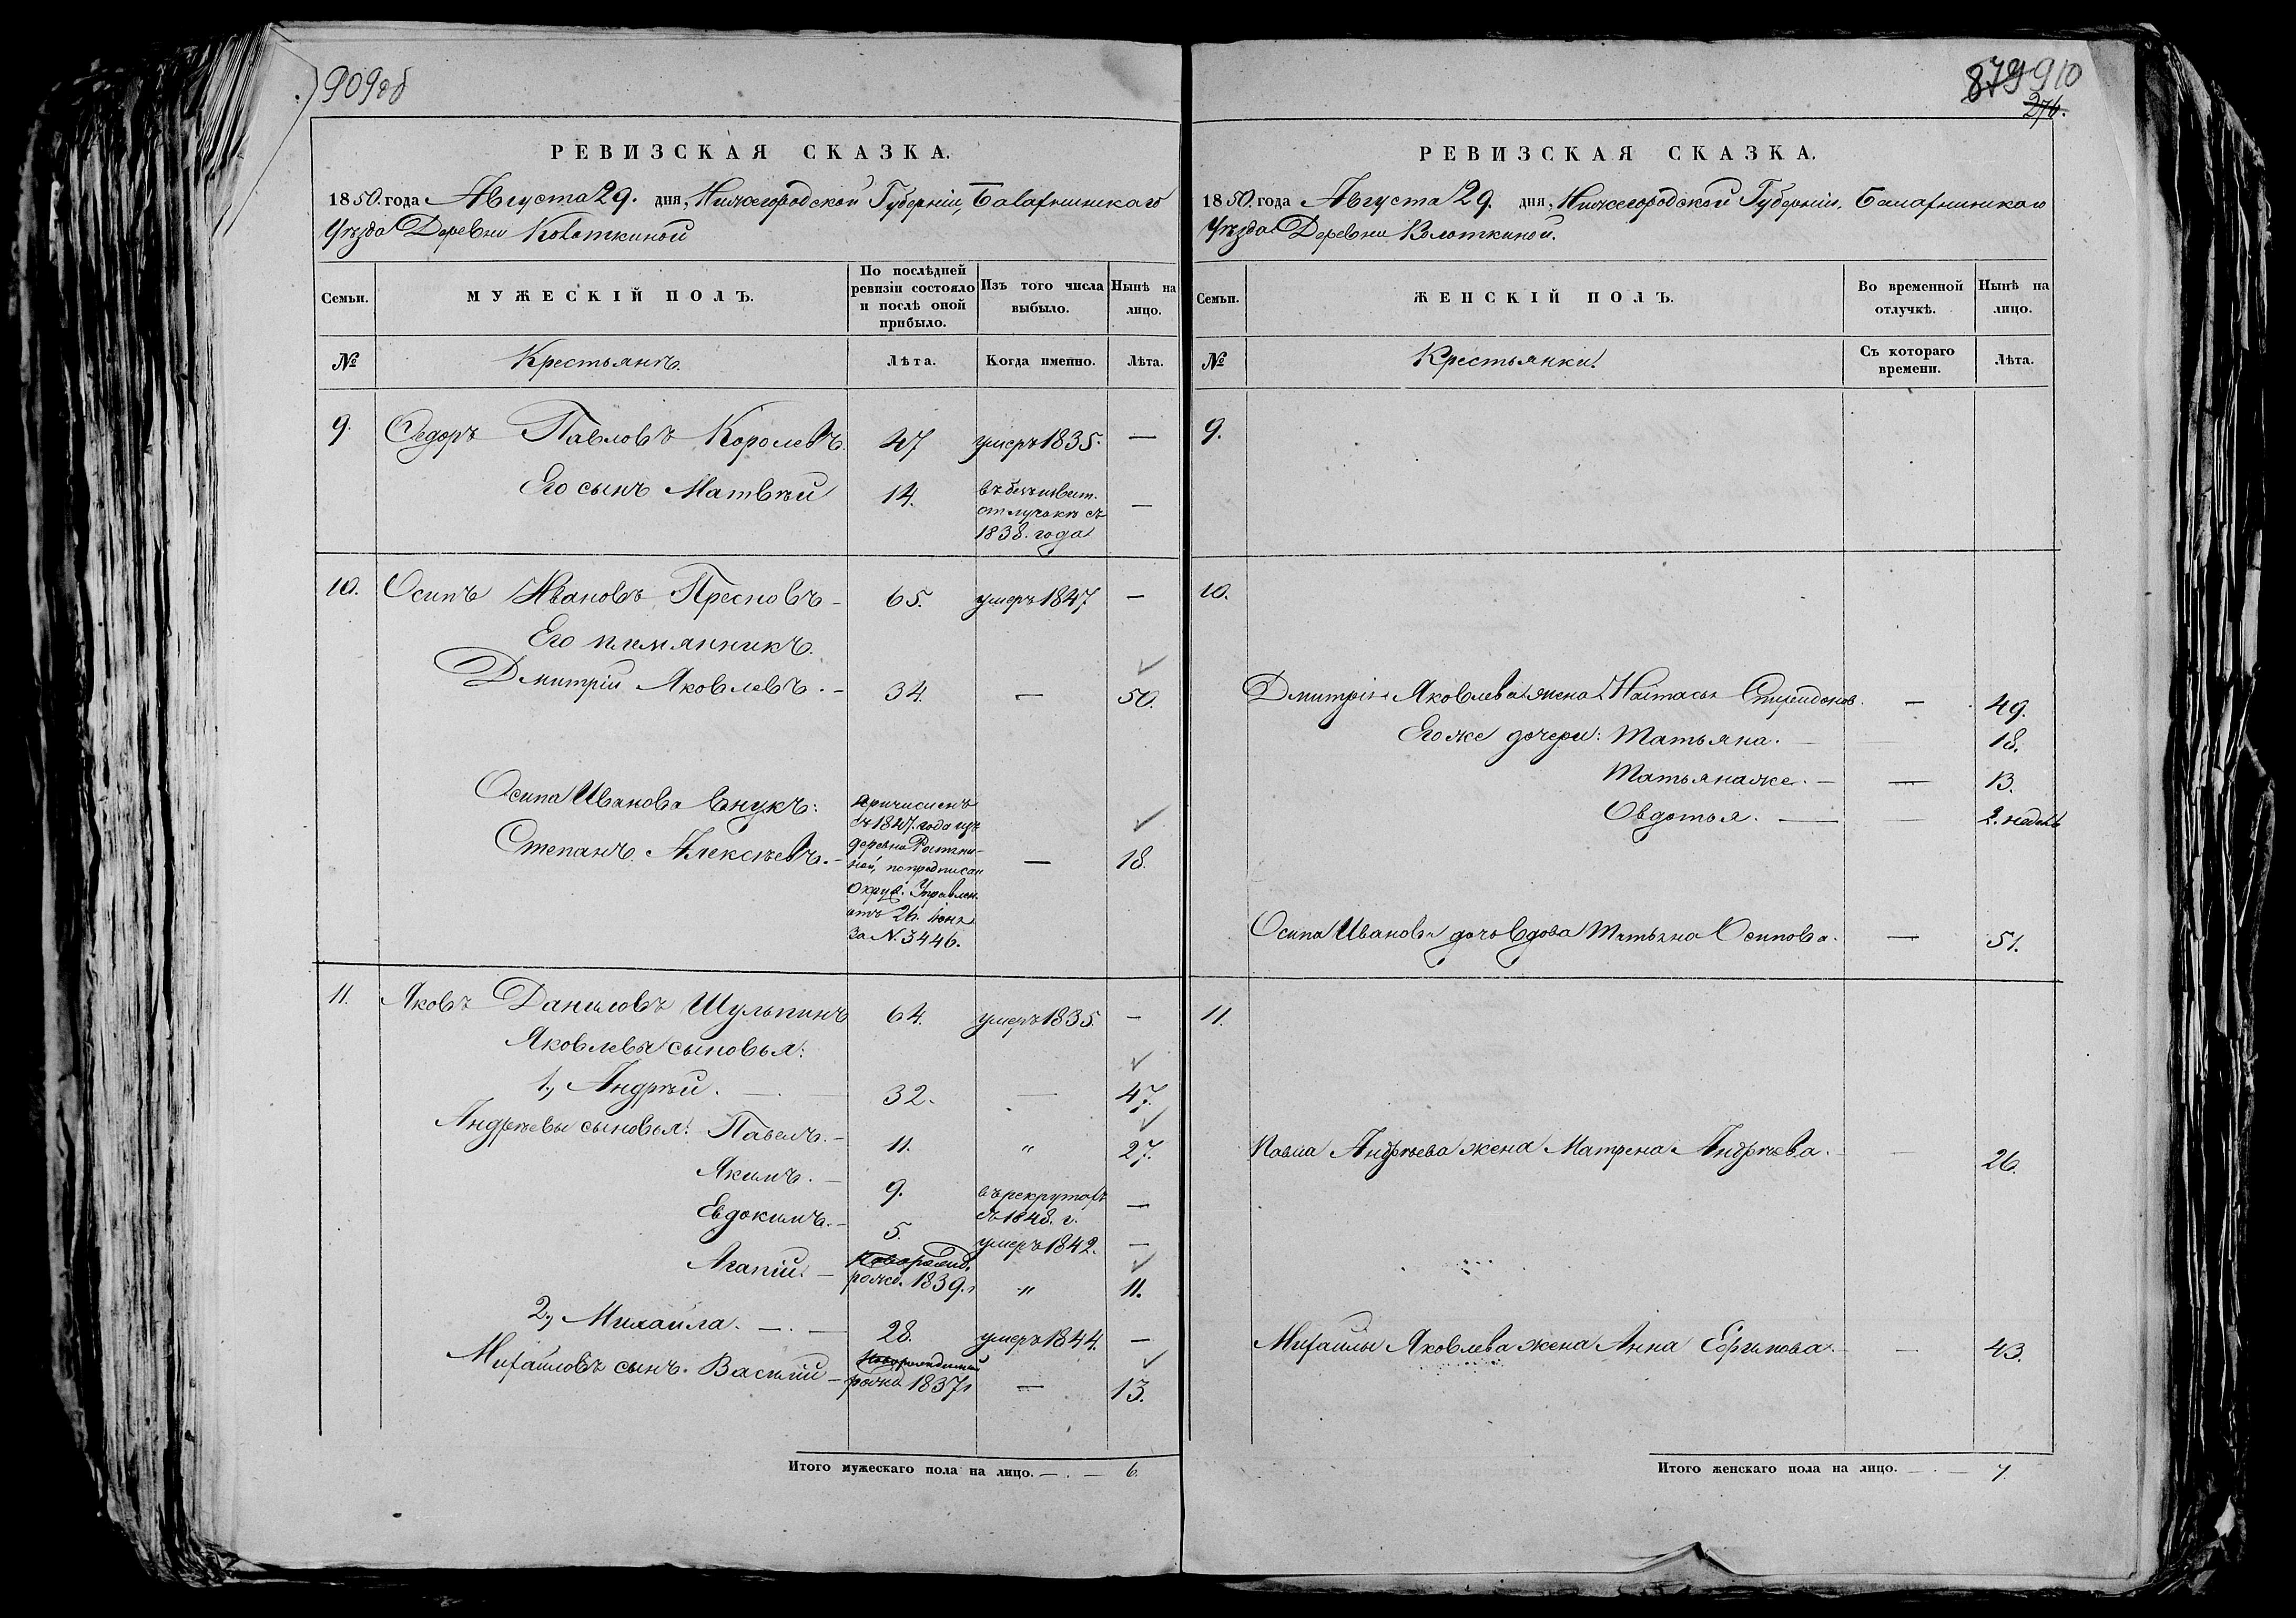 909об
РЕВИЗСКАЯ СКАЗКА.
1850. года Августа 29. дня, Нижегородской Губерніи, Балахнинскаго
Уѣзда Деревни
Семьи.
МУЖЕСКІЙ ПОЛЪ.
По послѣдней ревизіи состояло и послѣ оной прибыло.
Изъ того числа выбыло.
Нынѣ на лицо.
№
Крестьянъ.
Лѣта.
Когда именно.
Лѣта.
9. Ѳедоръ Павловъ Королевъ. 47 умеръ 1835. —
Его сынъ Матвѣй 14. въ безъизвест.
отлучкѣ съ —
1838. года
10. Осипъ Ивановъ Пресновъ – 65. умеръ 1847 —
Его племянникъ.
Дмитрій Яковлевъ. – 34. — 50.
Осипа Иванова внукъ:
Степанъ Алексѣевъ. – — 18.
причисленъ
съ 1847. года изъ
деревни
ной, по предписан
Окруж. Управлен.
отъ 26. Іюня
за N. 3446.
11. Яковъ Даниловъ Шульпинъ 64. умеръ 1835. —
Яковлевы сыновья:
1, Андрѣй. — 32. — 47.
Андрѣевы сыновья: Павелъ. – 11. " 27.
Якимъ. – 9. въ рекрутахъ
съ 1848. г. —
Евдокимъ. – 5. умеръ 1842. —
Агапій. – рожд. 1839. г " 11.
2, Михайла. — . — 28. умеръ 1844. —
Михайловъ сынъ. Василій – рожд. 1837 г — 13.
Итого мужескаго пола на лицо. — . — 6.
879 910
274.
РЕВИЗСКАЯ СКАЗКА.
1850. года Августа 29. дня, Нижегородской Губерніи, Балахнинскаго
Уѣзда Деревни
Семьи.
ЖЕНСКІЙ ПОЛЪ.
Во временной отлучкѣ.
Нынѣ на лицо.
№
Крестьянки.
Съ котораго времени.
Лѣта.
9.
10.
Дмитрія Яковлева жена Настасья Спиридонов. — 49.
Его же дочери: Татьяна. — 18.
Татьяна же. – — 13.
Овдотья. — — 2. недель
Осипа Иванова дочь вдова Татьяна Осипова. — 51.
11.
Павла Андрѣева жена Матрена Андрѣева. — 26.
Михайлы Яковлева жена Анна — 43.
Итого женскаго пола на лицо. — . — 7.